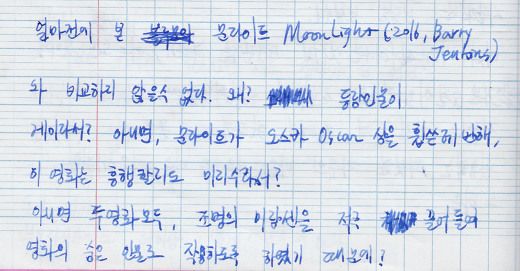 얼마전에 본 문라이트 MoonLight (2016, Barry
Jenkins)
와 비교하지 않을수 없다. 왜? 등장인물이
게이라서? 아니면, 문라이트가 오스카 Oscar 상을 휩쓴데 반해,
이 영화는 흥행할리도 미지수라서?
아니면 두영화 모두, 조명의 아름다움을 적극 끌어들여
영화의 숨은 인물로 작용하도록 하였기 때문에?